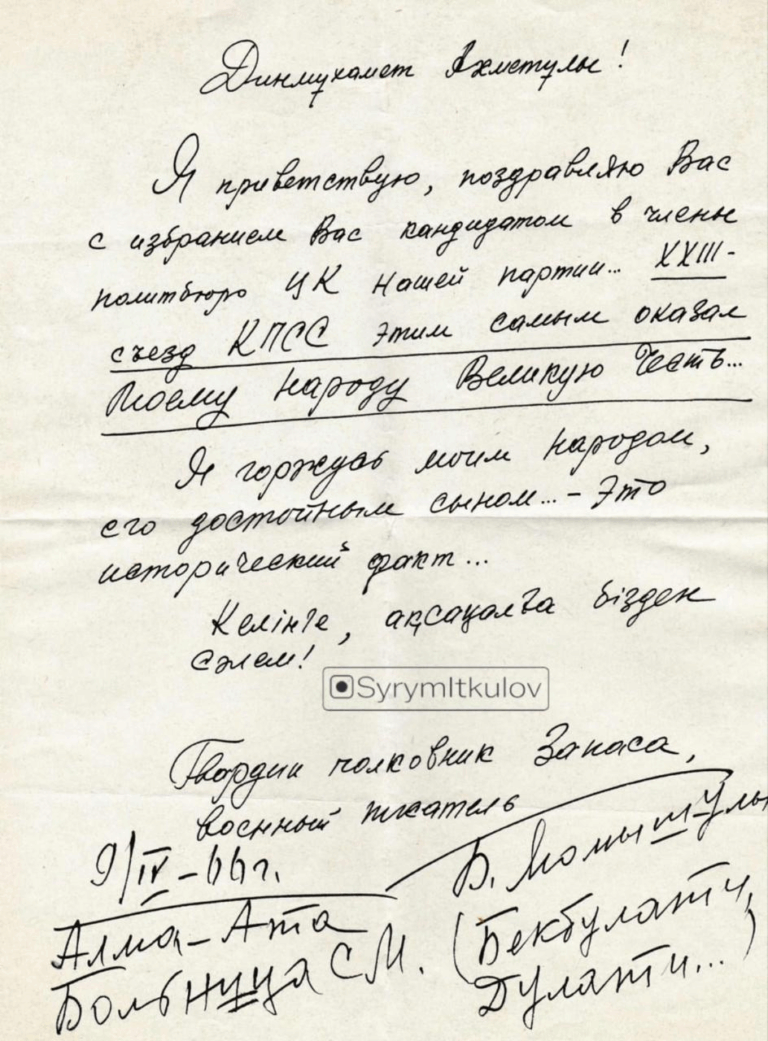 Динмухамет Ахметулы!
Я приветствую, поздравляю Вас
с избранием Вас кандидатом в члены
политбюро ЦК Нашей партии... XXIII-
съезд КПСС этим самым оказал
Моему Народу Великую Честь...
Я горжусь моим Народом,
его достойным сыном... - Это
исторический факт...
Келінге, ақсақалға бізден
сәлем!
SyrymItkulov
Гвардии полковник Запаса,
военный писатель
9/IV-66г.
Б. Момышулы
Алма-Ата
(Бекбулатти,
Больница СМ.
Дулатти...)